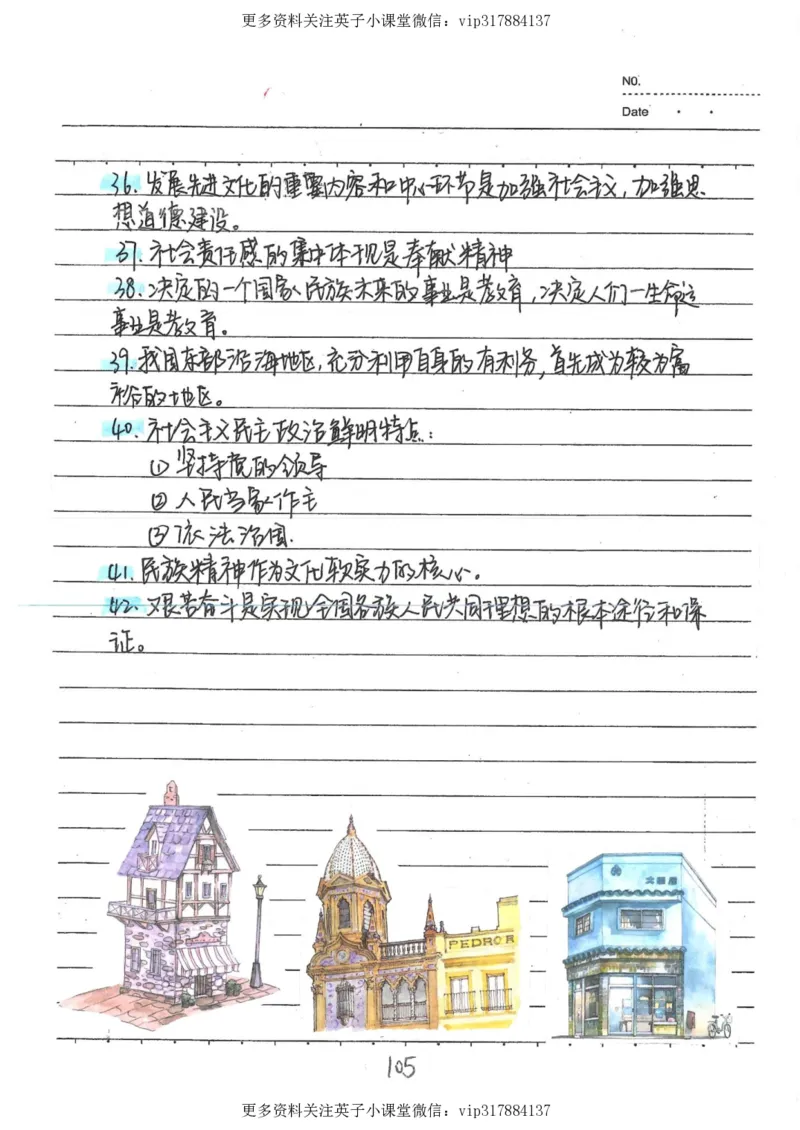 更多资料关注英子小课堂微信：vip317884137
NO.
Date
36.发展先进文化的重要内容和中心环节是加强社会主义,加强思
想道德建设。
37.社会责任感的集中体现是奉献精神
38.决定的一个国家、民族未来的事业是教育,决定人们一生命运
事业是教育。
39.我国东部沿海地区,充分利用自身的有利条,首先成为较为富
裕的地区。
40.社会主义民主政治鲜明特点:
①坚持党的领导
②人民当家作主
③依法治国.
41.民族精神作为文化软实力的核心。
42.艰苦奋斗是实现全国各族人民共同理想的根本途径和保
证。
PEDRO R
105
更多资料关注英子小课堂微信：vip317884137